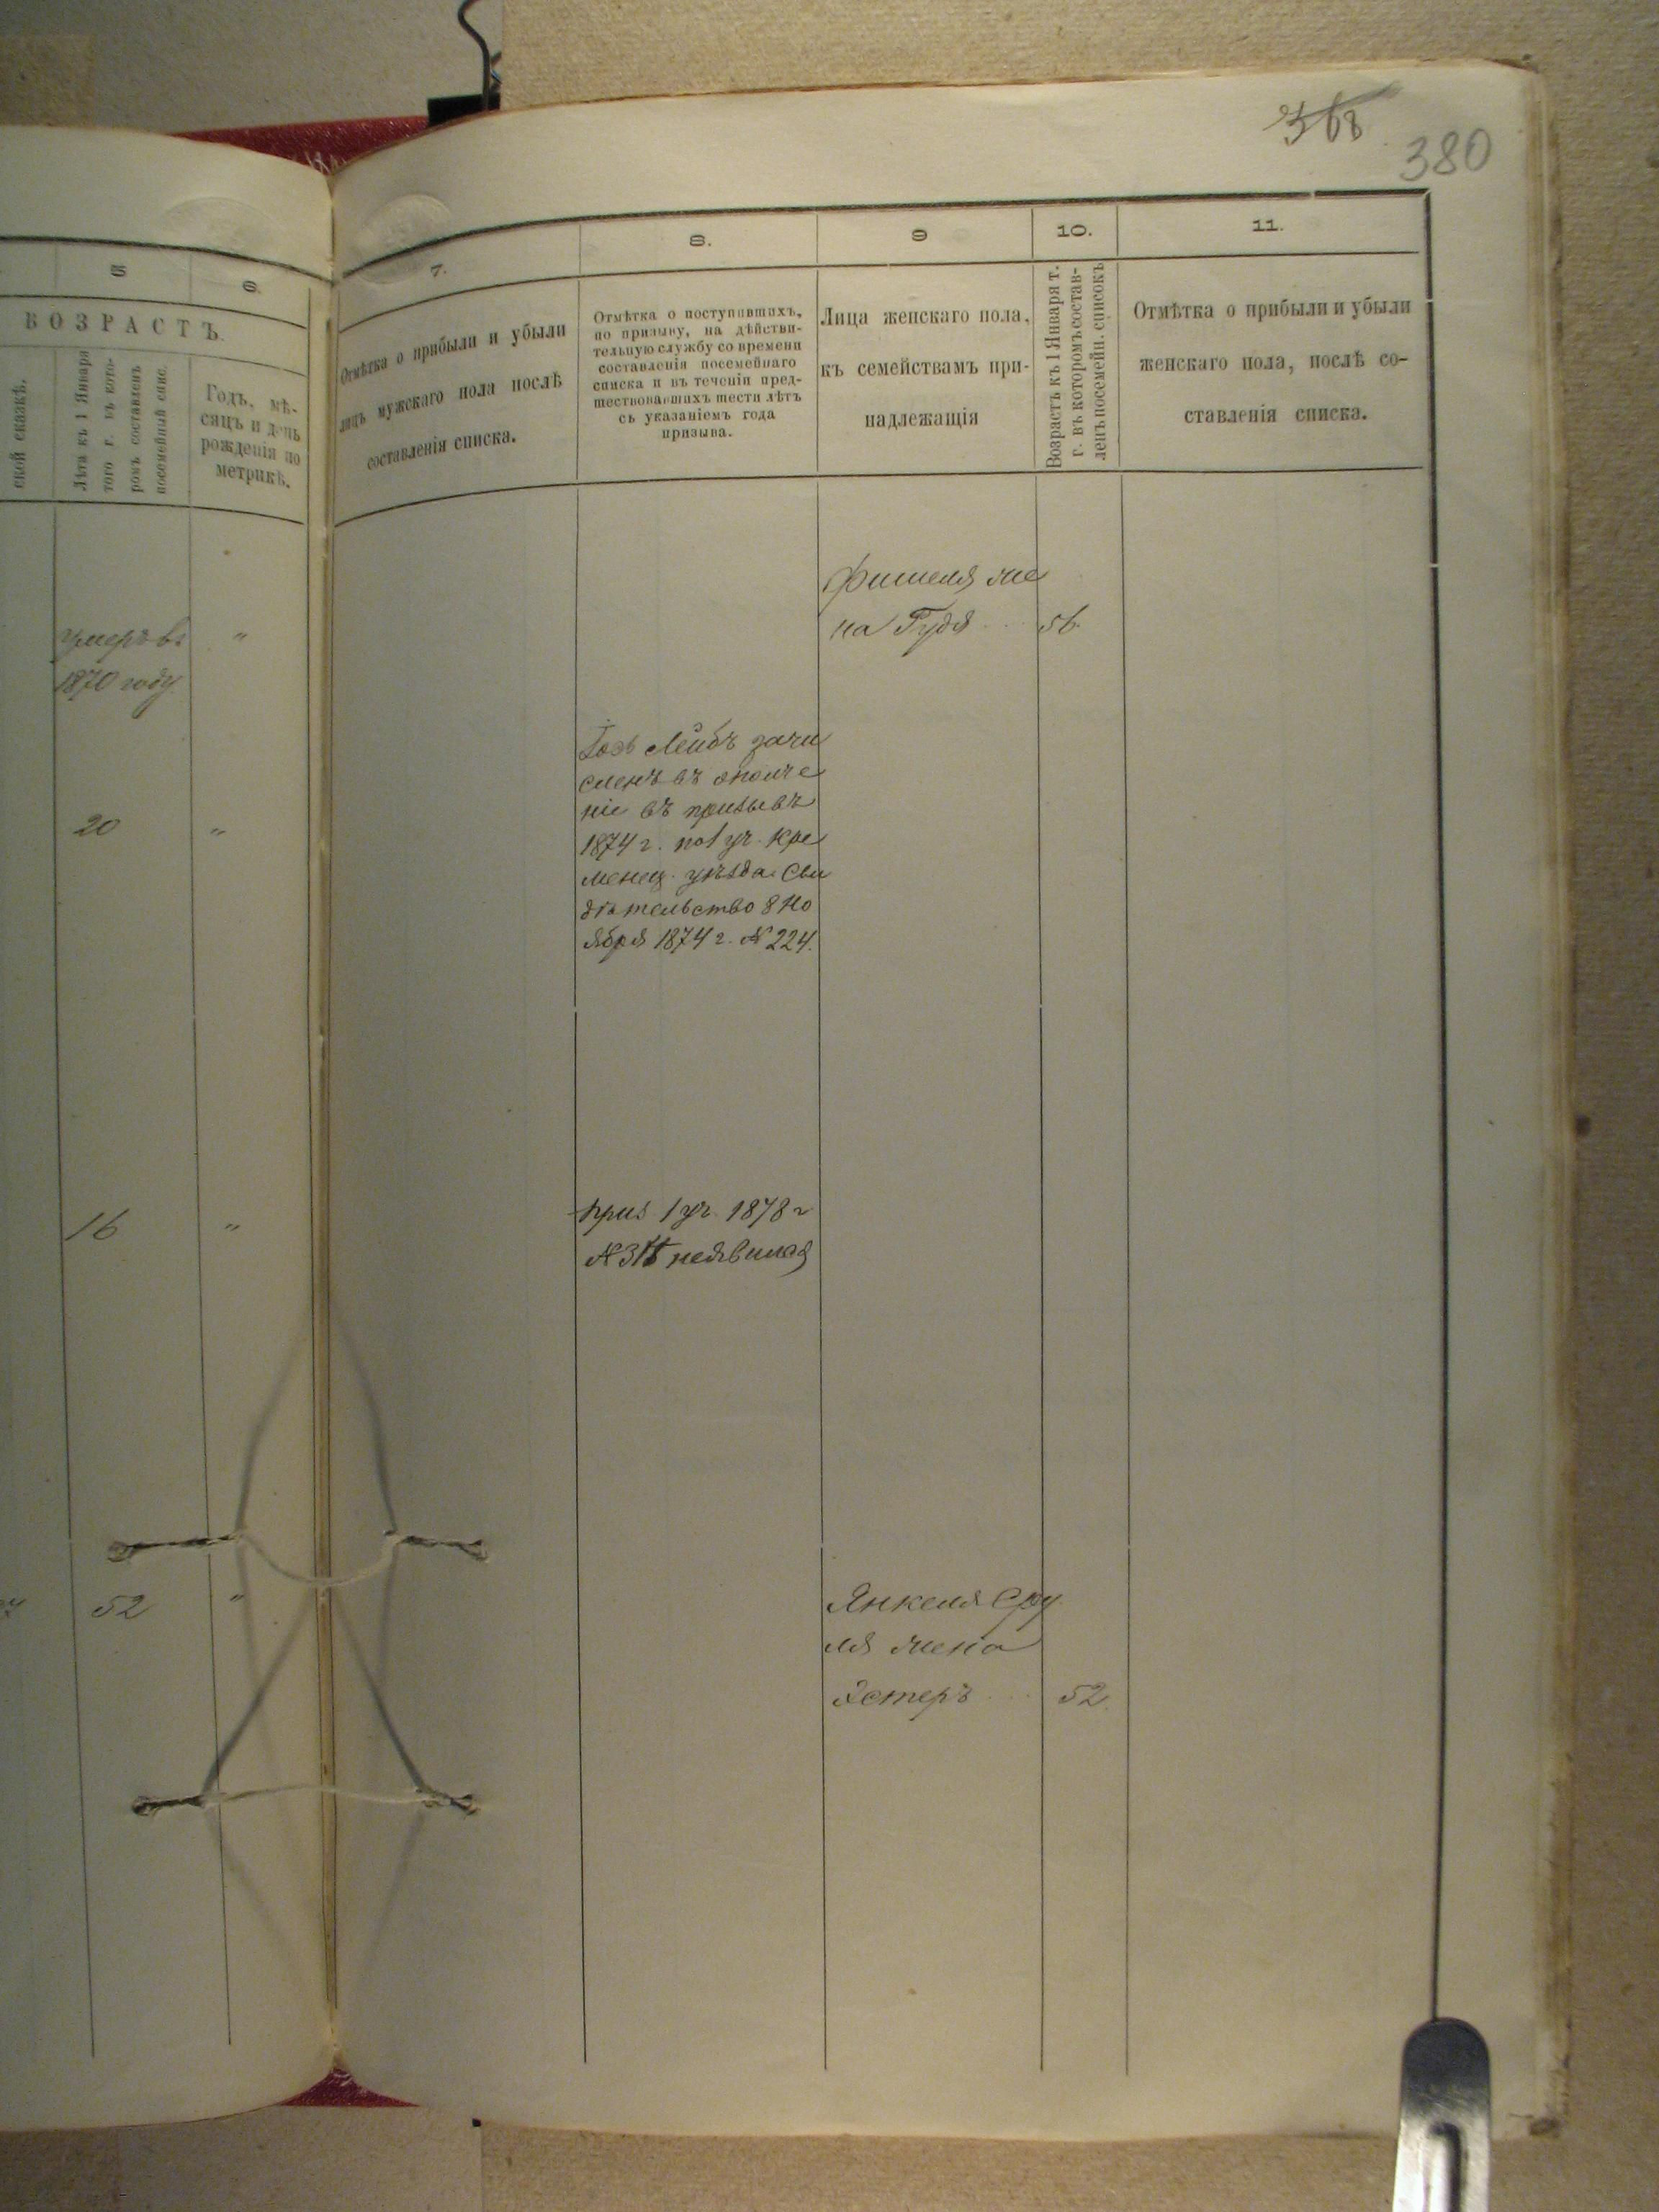 380
5
6.
ВОЗРАСТЪ.
ской сказкѣ.
Лѣта къ 1 Января
того г. въ кото-
ромъ составленъ
посемейный спис.
Годъ, мѣ-
сяцъ и день
рожденія по
метрикѣ.
умеръ въ "
1870 году.
20 "
16 "
52 "
7.
8.
9
10.
11.
Отмѣтка о прибыли и убыли
лицъ мужскаго пола послѣ
составленія списка.
Отмѣтка о поступившихъ,
по призыву, на дѣйстви-
тельную службу со времени
составленія посемейнаго
списка и въ теченіи пред-
шествовавшихъ шести лѣтъ
съ указаніемъ года
призыва.
Лица женскаго пола,
къ семействамъ при-
надлежащія
Возрастъ къ 1 Января т.
г. въ которомъ состав-
ленъ посемейн. списокъ
Отмѣтка о прибыли и убыли
женскаго пола, послѣ со-
ставленія списка.
Фишеля же
на Гудя 56.
Лейбъ зачи
сленъ въ ополче
ніе въ призывъ
1874 г. по 1 уч. Кре
менец. уѣзда. Сви
дѣтельство 8 Но
ября 1874 г. № 224.
приз 1 уч. 1878 г
неявился
Янкеля Сру
ля жена
Эстеръ 52.